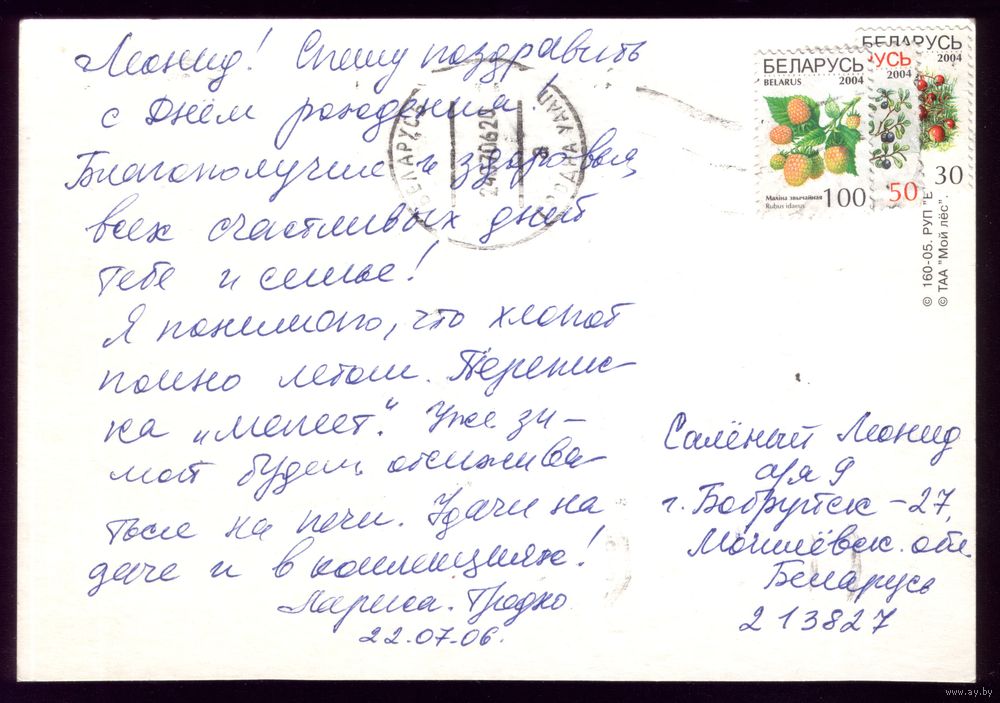 Леонид! Спешу поздравить
с Днём рождения!
Благополучия и здоровья,
всех счастливых дней
тебе и семье!
Я понимаю, что хлопот
полно летом. Перепис-
ка „млеет“. Уже зи-
мой будем отсижива-
ться на печи. Удачи на
даче и в коллекциях!
Лариса. Гродно
22.07.06.
БЕЛАРУСЬ
BELARUS 2004
Маліна звычайная
Rubus idaeus
100
РУСЬ
2004
50
БЕЛАРУСЬ
2004
30
БЕЛАРУСЬ
© 160-05. РУП "Б
© ТАА "Мой лёс".
Салёный Леонид
а/я 9
г. Бобруйск - 27,
Могилёвск. обл.
Беларусь
213827
www.ay.by